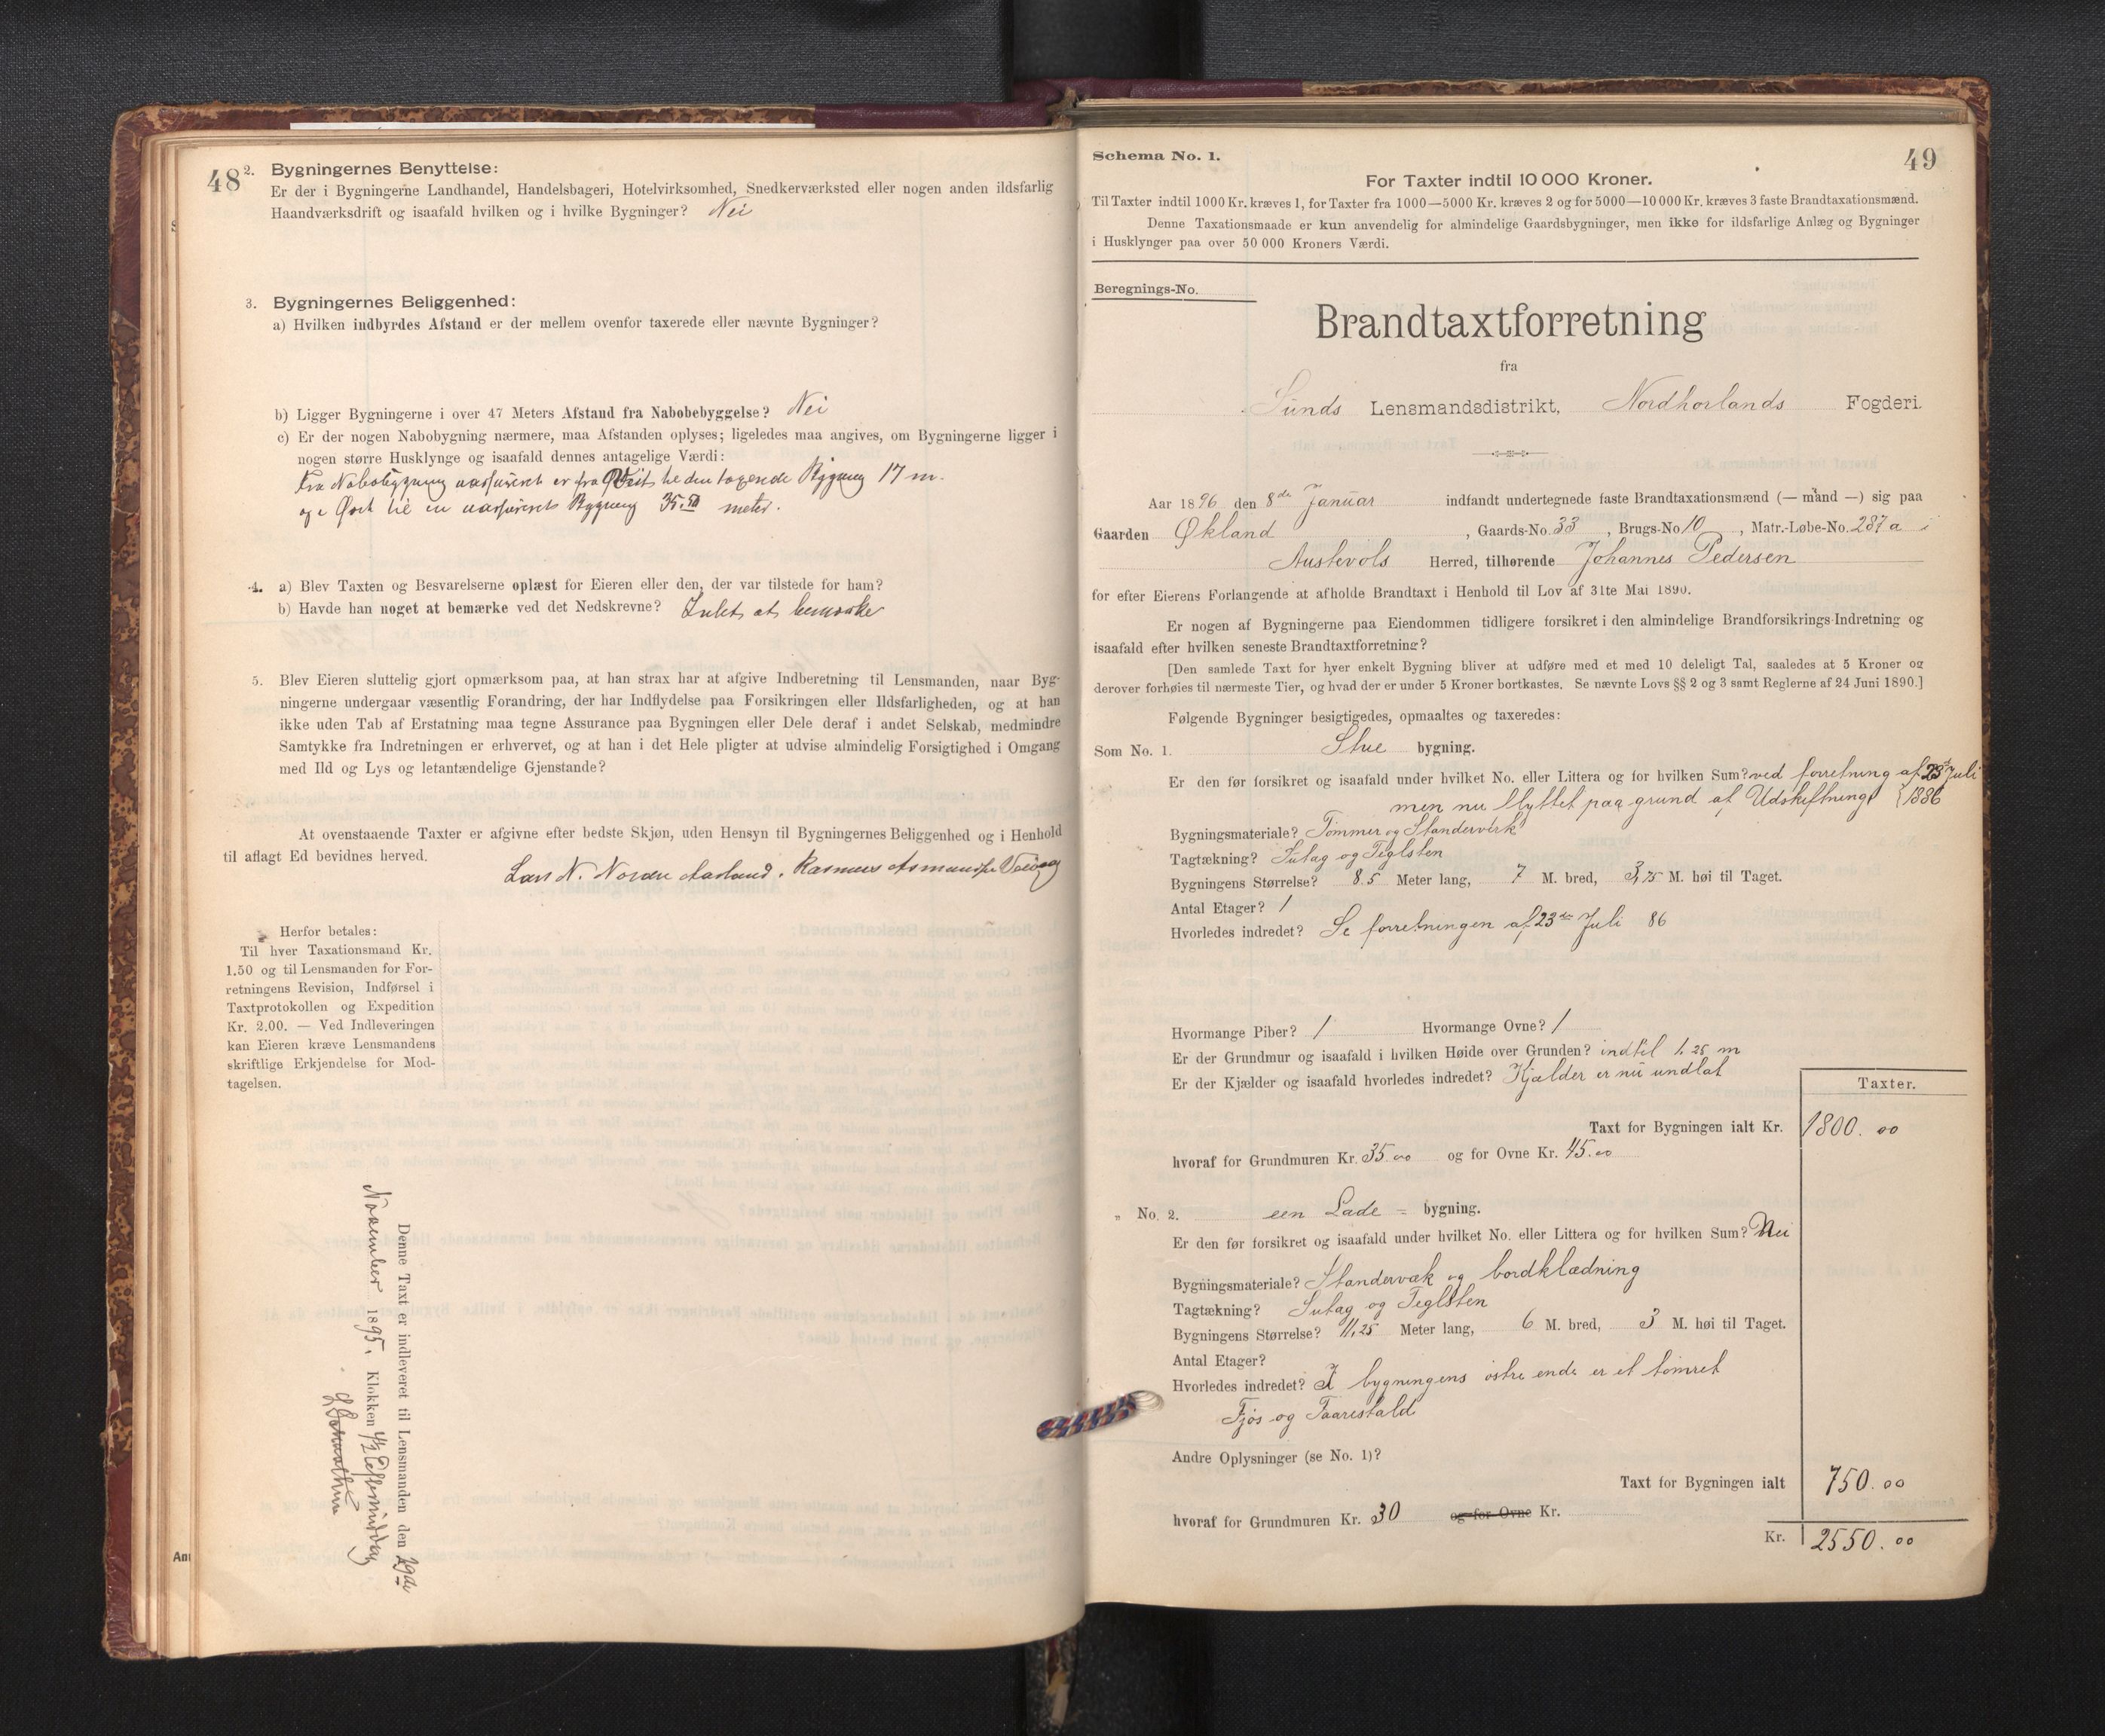 48
2. Bygningernes Benyttelse:
Er der i Bygningerne Landhandel, Handelsbageri, Hotelvirksomhed, Snedkerværksted eller nogen anden ildsfarlig
Haandværksdrift og isaafald hvilken og i hvilke Bygninger? Nei
3. Bygningernes Beliggenhed:
a) Hvilken indbyrdes Afstand er der mellem ovenfor taxerede eller nævnte Bygninger?
b) Ligger Bygningerne i over 47 Meters Afstand fra Nabobebyggelse? Nei
c) Er der nogen Nabobygning nærmere, maa Afstanden oplyses; ligeledes maa angives, om Bygningerne ligger i
nogen større Husklynge og isaafald dennes antagelige Værdi:
Fra Nabobygning uassureret er fra til den Bygning 17 m.
og i Øst til en uassureret Bygning 35.50 meter.
4. a) Blev Taxten og Besvarelserne oplæst for Eieren eller den, der var tilstede for ham?
b) Havde han noget at bemærke ved det Nedskrevne? Intet at bemærke
5. Blev Eieren sluttelig gjort opmærksom paa, at han strax har at afgive Indberetning til Lensmanden, naar Byg-
ningerne undergaar væsentlig Forandring, der har Indflydelse paa Forsikringen eller Ildsfarligheden, og at han
ikke uden Tab af Erstatning maa tegne Assurance paa Bygningen eller Dele deraf i andet Selskab, medmindre
Samtykke fra Indretningen er erhvervet, og at han i det Hele pligter at udvise almindelig Forsigtighed i Omgang
med Ild og Lys og letantændelige Gjenstande?
At ovenstaaende Taxter er afgivne efter bedste Skjøn, uden Hensyn til Bygningernes Beliggenhed og i Henhold
til aflagt Ed bevidnes herved.
Lars N. Rasmus
Herfor betales:
Til hver Taxationsmand Kr.
1.50 og til Lensmanden for For-
retningens Revision, Indførsel i
Taxtprotokollen og Expedition
Kr. 2.00. — Ved Indleveringen
kan Eieren kræve Lensmandens
skriftlige Erkjendelse for Mod-
tagelsen.
Denne Taxt er indleveret til Lensmanden den 29de
November 1895, Klokken 4½ Eftermiddag
49
Schema No. 1.
For Taxter indtil 10 000 Kroner.
Til Taxter indtil 1000 Kr. kræves 1, for Taxter fra 1000—5000 Kr. kræves 2 og for 5000—10 000 Kr. kræves 3 faste Brandtaxationsmænd.
Denne Taxationsmaade er kun anvendelig for almindelige Gaardsbygninger, men ikke for ildsfarlige Anlæg og Bygninger
i Husklynger paa over 50 000 Kroners Værdi.
Beregnings-No.
Brandtaxtforretning
fra
Sunds Lensmandsdistrikt, Nordhorlands Fogderi.
Aar 1896 den 8de Januar indfandt undertegnede faste Brandtaxationsmænd (— mand —) sig paa
Gaarden Økland, Gaards-No. 33, Brugs-No 10, Matr.-Løbe-No. 287a i
Austevols Herred, tilhørende Johannes Pedersen
for efter Eierens Forlangende at afholde Brandtaxt i Henhold til Lov af 31te Mai 1890.
Er nogen af Bygningerne paa Eiendommen tidligere forsikret i den almindelige Brandforsikrings-Indretning og
isaafald efter hvilken seneste Brandtaxtforretning?
[Den samlede Taxt for hver enkelt Bygning bliver at udføre med et med 10 deleligt Tal, saaledes at 5 Kroner og
derover forhøies til nærmeste Tier, og hvad der er under 5 Kroner bortkastes. Se nævnte Lovs §§ 2 og 3 samt Reglerne af 24 Juni 1890.]
Følgende Bygninger besigtigedes, opmaaltes og taxeredes:
Som No. 1. Stue bygning.
Er den før forsikret og isaafald under hvilket No. eller Littera og for hvilken Sum? ved forretning af 23de Juli
men nu flyttet paa grund af Udskiftning 1886
Bygningsmateriale? Tømmer og Standerværk
Tagtækning? Sutag og Teglsten
Bygningens Størrelse? 8.5 Meter lang, 7 M. bred, 3,75 M. høi til Taget.
Antal Etager? 1
Hvorledes indredet? Se forretningen af 23de Juli 86
Hvormange Piber? 1 Hvormange Ovne? 1
Er der Grundmur og isaafald i hvilken Høide over Grunden? indtil 1,25 m
Er der Kjælder og isaafald hvorledes indredet? Kjælder er nu undlat
Taxter.
Taxt for Bygningen ialt Kr. 1800.00
hvoraf for Grundmuren Kr. 35.00 og for Ovne Kr. 45.00
„ No. 2. een Lade = bygning.
Er den før forsikret og isaafald under hvilket No. eller Littera og for hvilken Sum? Nei
Bygningsmateriale? Standervæk og bordklædning
Tagtækning? Sutag og Teglsten
Bygningens Størrelse? 11,25 Meter lang, 6 M. bred, 3 M. høi til Taget.
Antal Etager?
Hvorledes indredet? I bygningens østre ende er et tømret
Fjøs og Faarestald
Andre Oplysninger (se No. 1)?
Taxt for Bygningen ialt 750.00
hvoraf for Grundmuren Kr. 30 og for Ovne Kr.
Kr. 2550.00